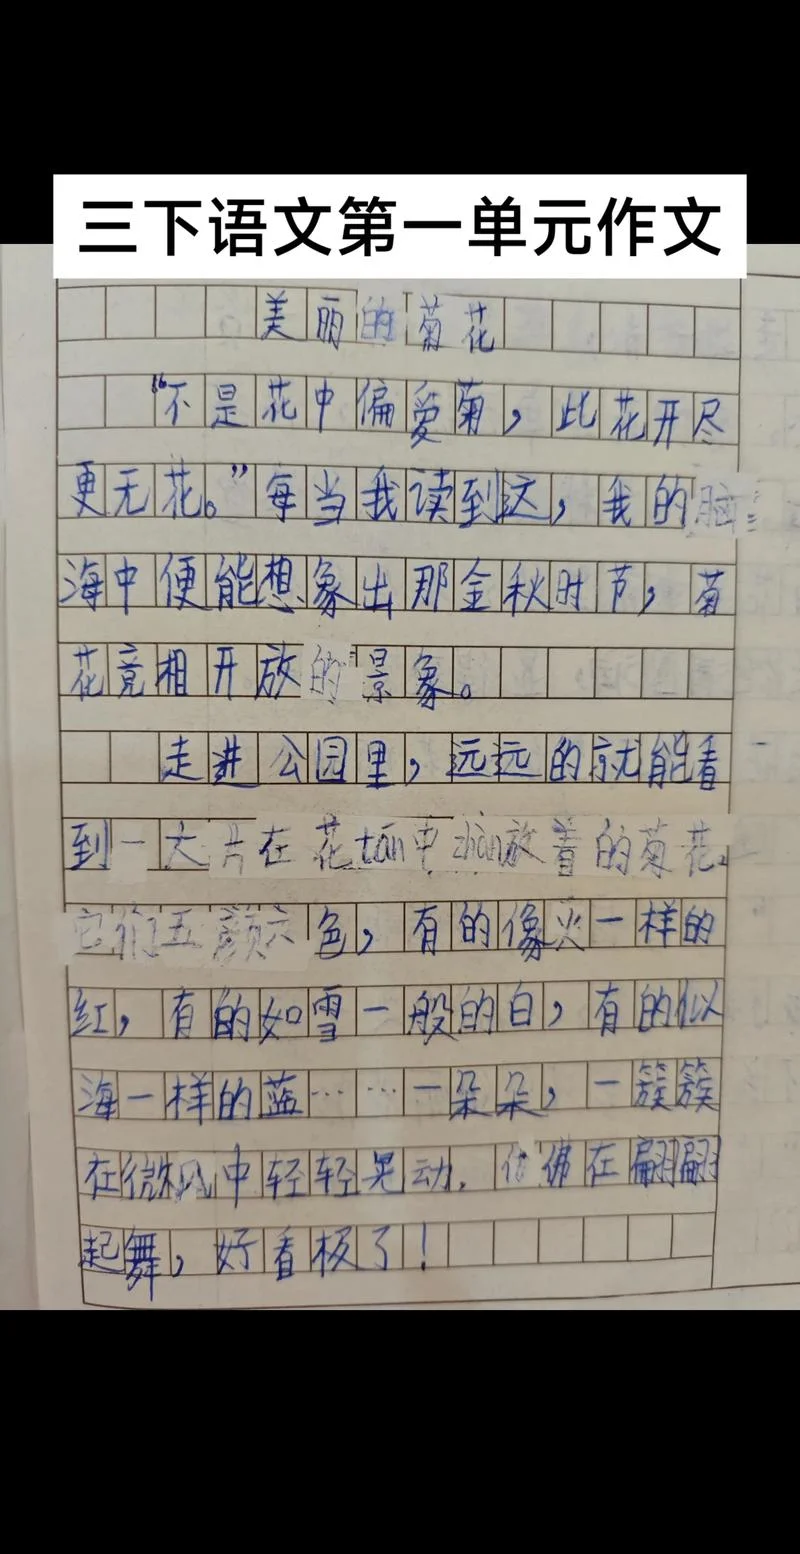 三下语文第一单元作文
美丽的菊花
“不是花中偏爱菊，此花开尽
更无花。”每当我读到这，我的脑
海中便能想象出那金秋时节，菊
花竞相开放的景象。
走进公园里，远远的就能看
到一大片在花tán中zhàn放着的菊花。
它们五颜六色，有的像火一样的
红，有的如雪一般的白，有的似
海一样的蓝……一朵朵，一簇簇
在微风中轻轻晃动，仿佛在翩翩
起舞，好看极了！